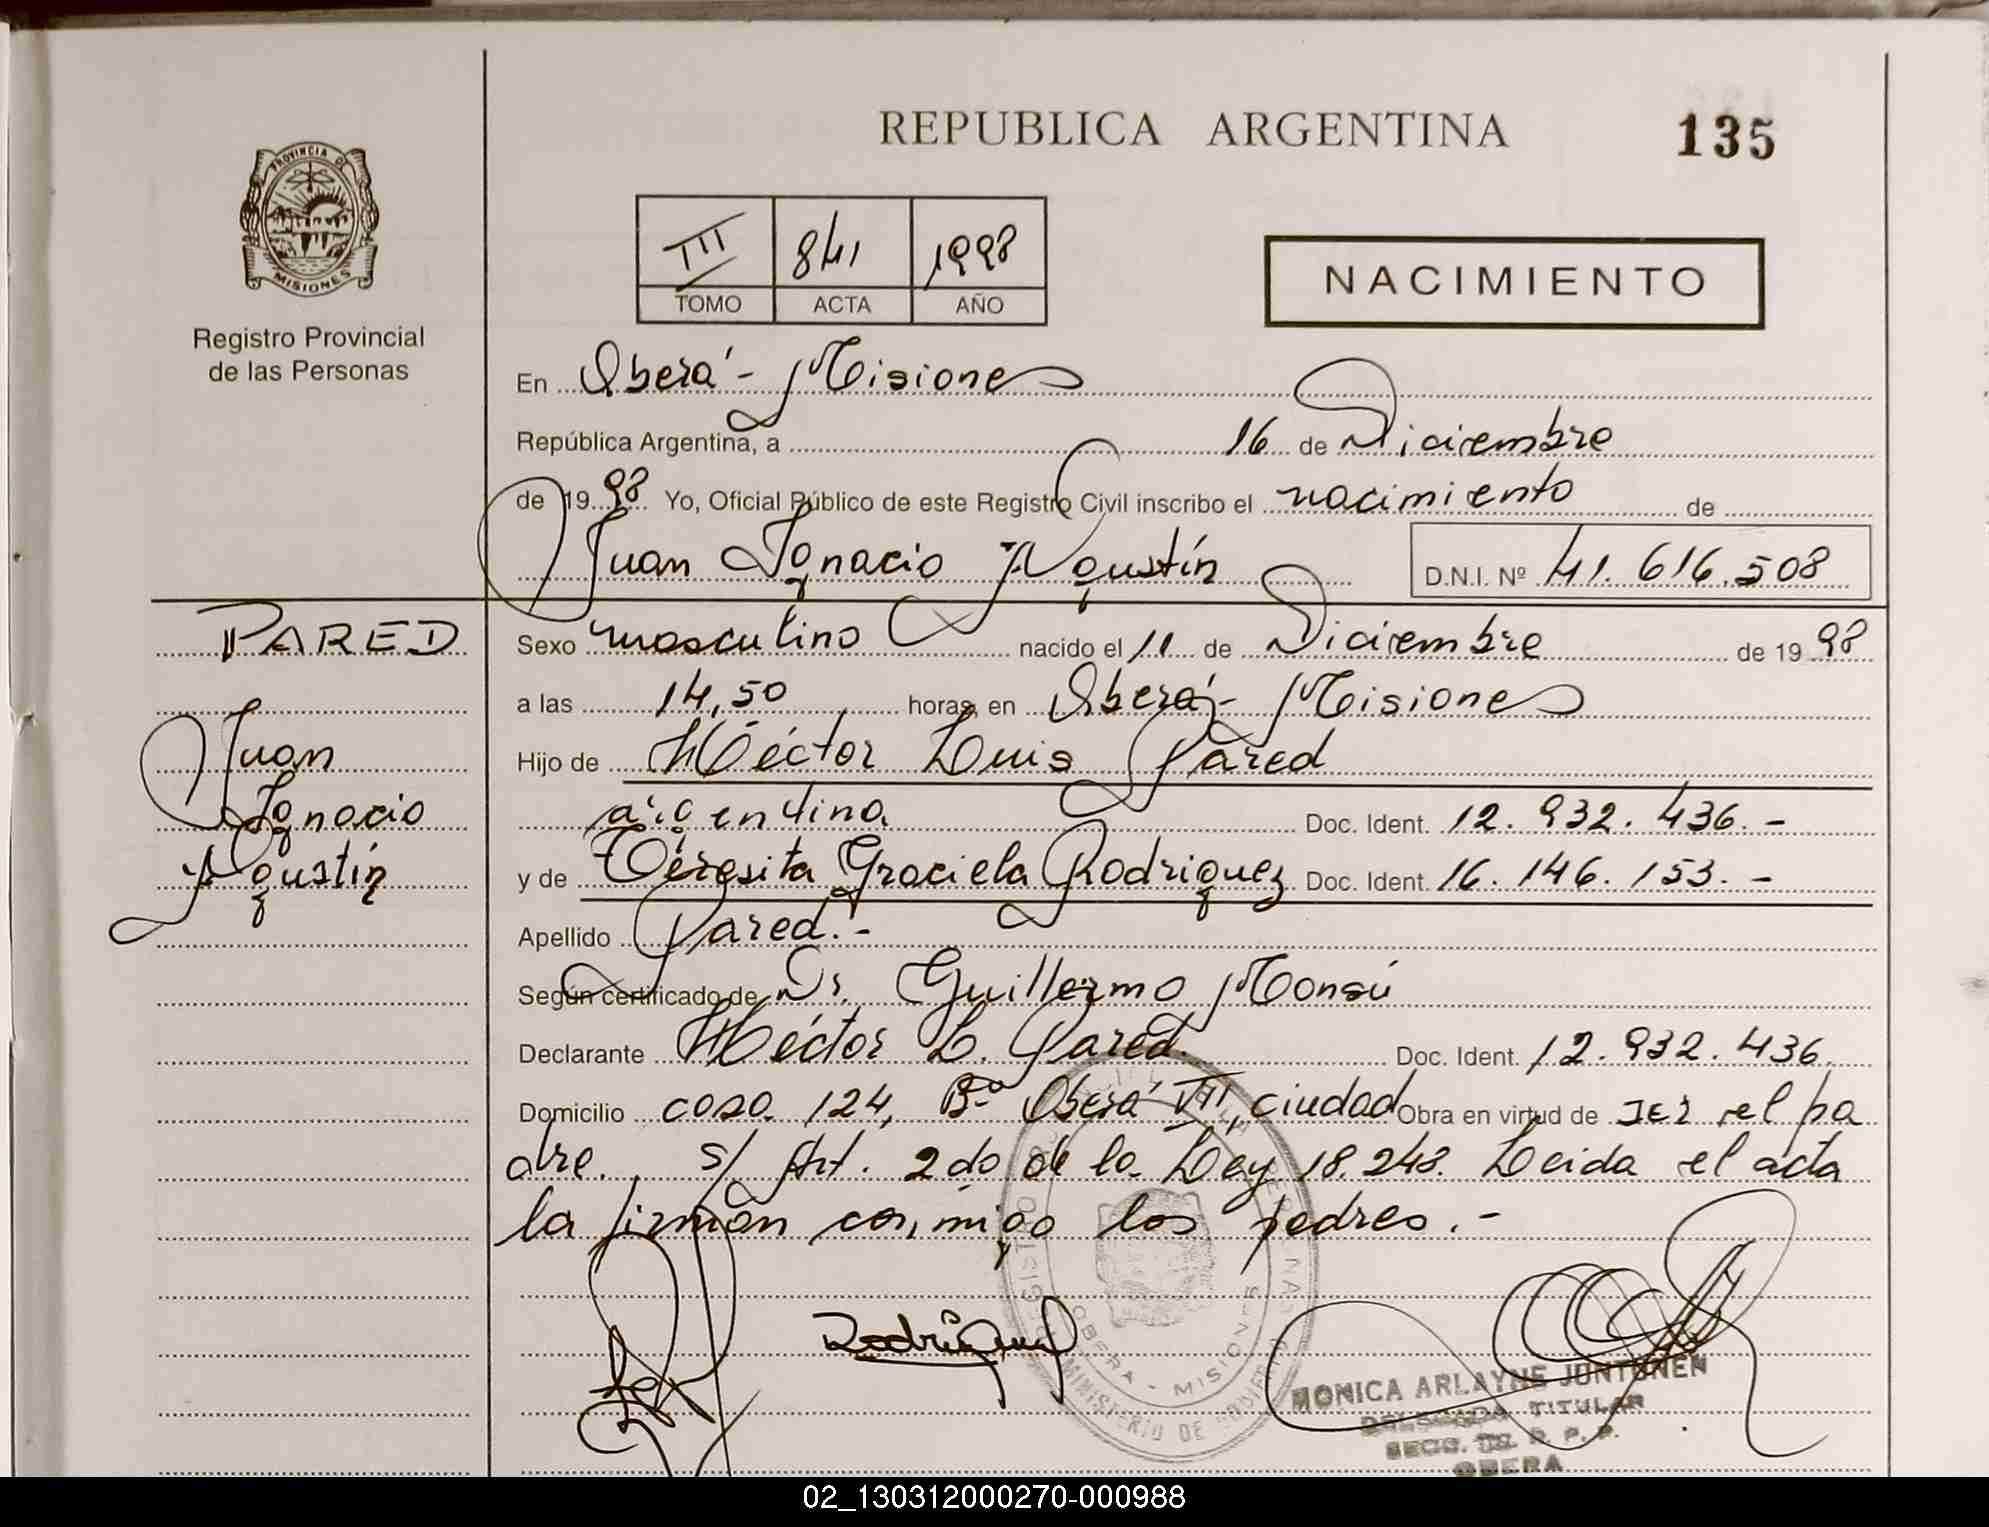 REPUBLICA ARGENTINA
135
PROVINCIA DE
MISIONES
Registro Provincial
de las Personas
III 841 1998
TOMO ACTA AÑO
NACIMIENTO
En Oberá - Misiones
República Argentina, a 16 de Diciembre
de 1998 Yo, Oficial Público de este Registro Civil inscribo el nacimiento de
Juan Ignacio Agustín D.N.I. Nº 41.616.508
PARED
Juan
Ignacio
Agustín
Sexo masculino nacido el 11 de Diciembre de 1998
a las 14,50 horas, en Oberá - Misiones
Hijo de Héctor Luis Pared
argentina Doc. Ident. 12.932.436.-
y de Teresita Graciela Rodriguez Doc. Ident. 16.146.153.-
Apellido Pared.-
Según certificado de Dr. Guillermo Monsú
Declarante Héctor L. Pared. Doc. Ident. 12.932.436.
Domicilio casa 124, Bº Oberá VII, ciudad Obra en virtud de ser el pa
dre. s/ Art. 2do de la Ley 18.248. Leida el acta
la firman conmigo los padres.-
Rodriguez
OBERA - MISIONES
MINISTERIO DE GOBIERNO
MONICA ARLAYNE JUNTUNEN
DELEGADA TITULAR
SECC. R. P. P.
OBERA
02_130312000270-000988